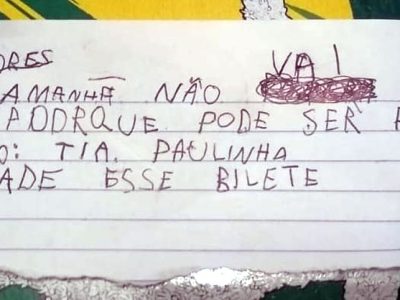 ORES VAI
AMANHÃ NÃO
PODRQUE PODE SER
O: TIA. PAULINHA
ADE ESSE BILETE